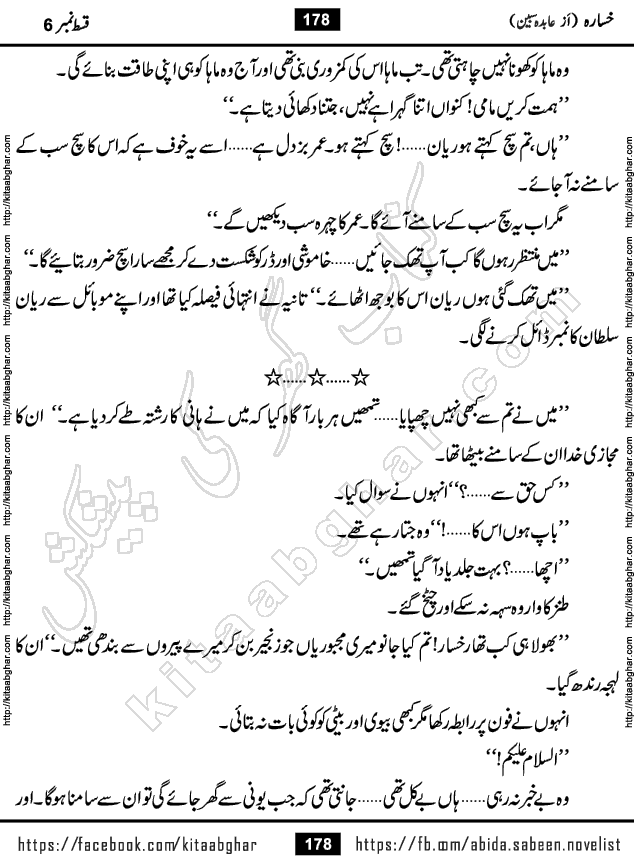 خسارہ (از عابدہ سبین)
178
قسط نمبر 6
وہ ماہا کو کھونا نہیں چاہتی تھی۔ تب ماہا اس کی کمزوری بنی تھی اور آج وہ ماہا کو ہی اپنی طاقت بنائے گی۔
”ہمت کریں مامی! کنواں اتنا گہرا ہے نہیں، جتنا دکھائی دیتا ہے۔“
”ہاں، تم سچ کہتے ہو ریان......! سچ کہتے ہو۔ عمر بزدل ہے...... اسے یہ خوف ہے کہ اس کا سچ سب کے
سامنے نہ آجائے۔
مگر اب یہ سچ سب کے سامنے آئے گا۔ عمر کا چہرہ سب دیکھیں گے۔“
”میں منتظر رہوں گا کب آپ تھک جائیں...... خاموشی اور ڈر کو شکست دے کر مجھے سارا سچ ضرور بتائیے گا۔“
”میں تھک گئی ہوں ریان اس کا بوجھ اٹھائے۔“ تانیہ نے انتہائی فیصلہ کیا تھا اور اپنے موبائل سے ریان
سلطان کا نمبر ڈائل کرنے لگی۔
☆......☆......☆
”میں نے تم سے کبھی نہیں چھپایا...... تمھیں ہر بار آگاہ کیا کہ میں نے ہانی کا رشتہ طے کر دیا ہے۔“ ان کا
مجازی خدا ان کے سامنے بیٹھا تھا۔
”کس حق سے......؟“ انہوں نے سوال کیا۔
”باپ ہوں اس کا......!“ وہ جتا رہے تھے۔
”اچھا......؟ بہت جلد یاد آ گیا تمھیں۔“
طنز کا وار وہ سہہ نہ سکے اور چیخ گئے۔
”بھولا ہی کب تھا رخسار! تم کیا جانو میری مجبوریاں جو زنجیر بن کر میرے پیروں سے بندھی تھیں۔“ ان کا
لہجہ رندھ گیا۔
انہوں نے فون پر رابطہ رکھا مگر کبھی بیوی اور بیٹی کو کوئی بات نہ بتائی۔
”السلام علیکم!“
وہ بے خبر نہ رہی...... ہاں بے کل تھی...... جانتی تھی کہ جب یونی سے گھر جائے گی تو ان سے سامنا ہوگا۔ اور
کتاب گھر کی پیشکش
kitaabghar.com
http://kitaabghar.com http://kitaabghar.com http://kitaabghar.com http://kitaabghar.com http://kitaabghar.com http://kitaabghar.com
http://kitaabghar.com http://kitaabghar.com http://kitaabghar.com http://kitaabghar.com http://kitaabghar.com http://kitaabghar.com
https://facebook.com/kitaabghar
178
https://fb.com/abida.sabeen.novelist